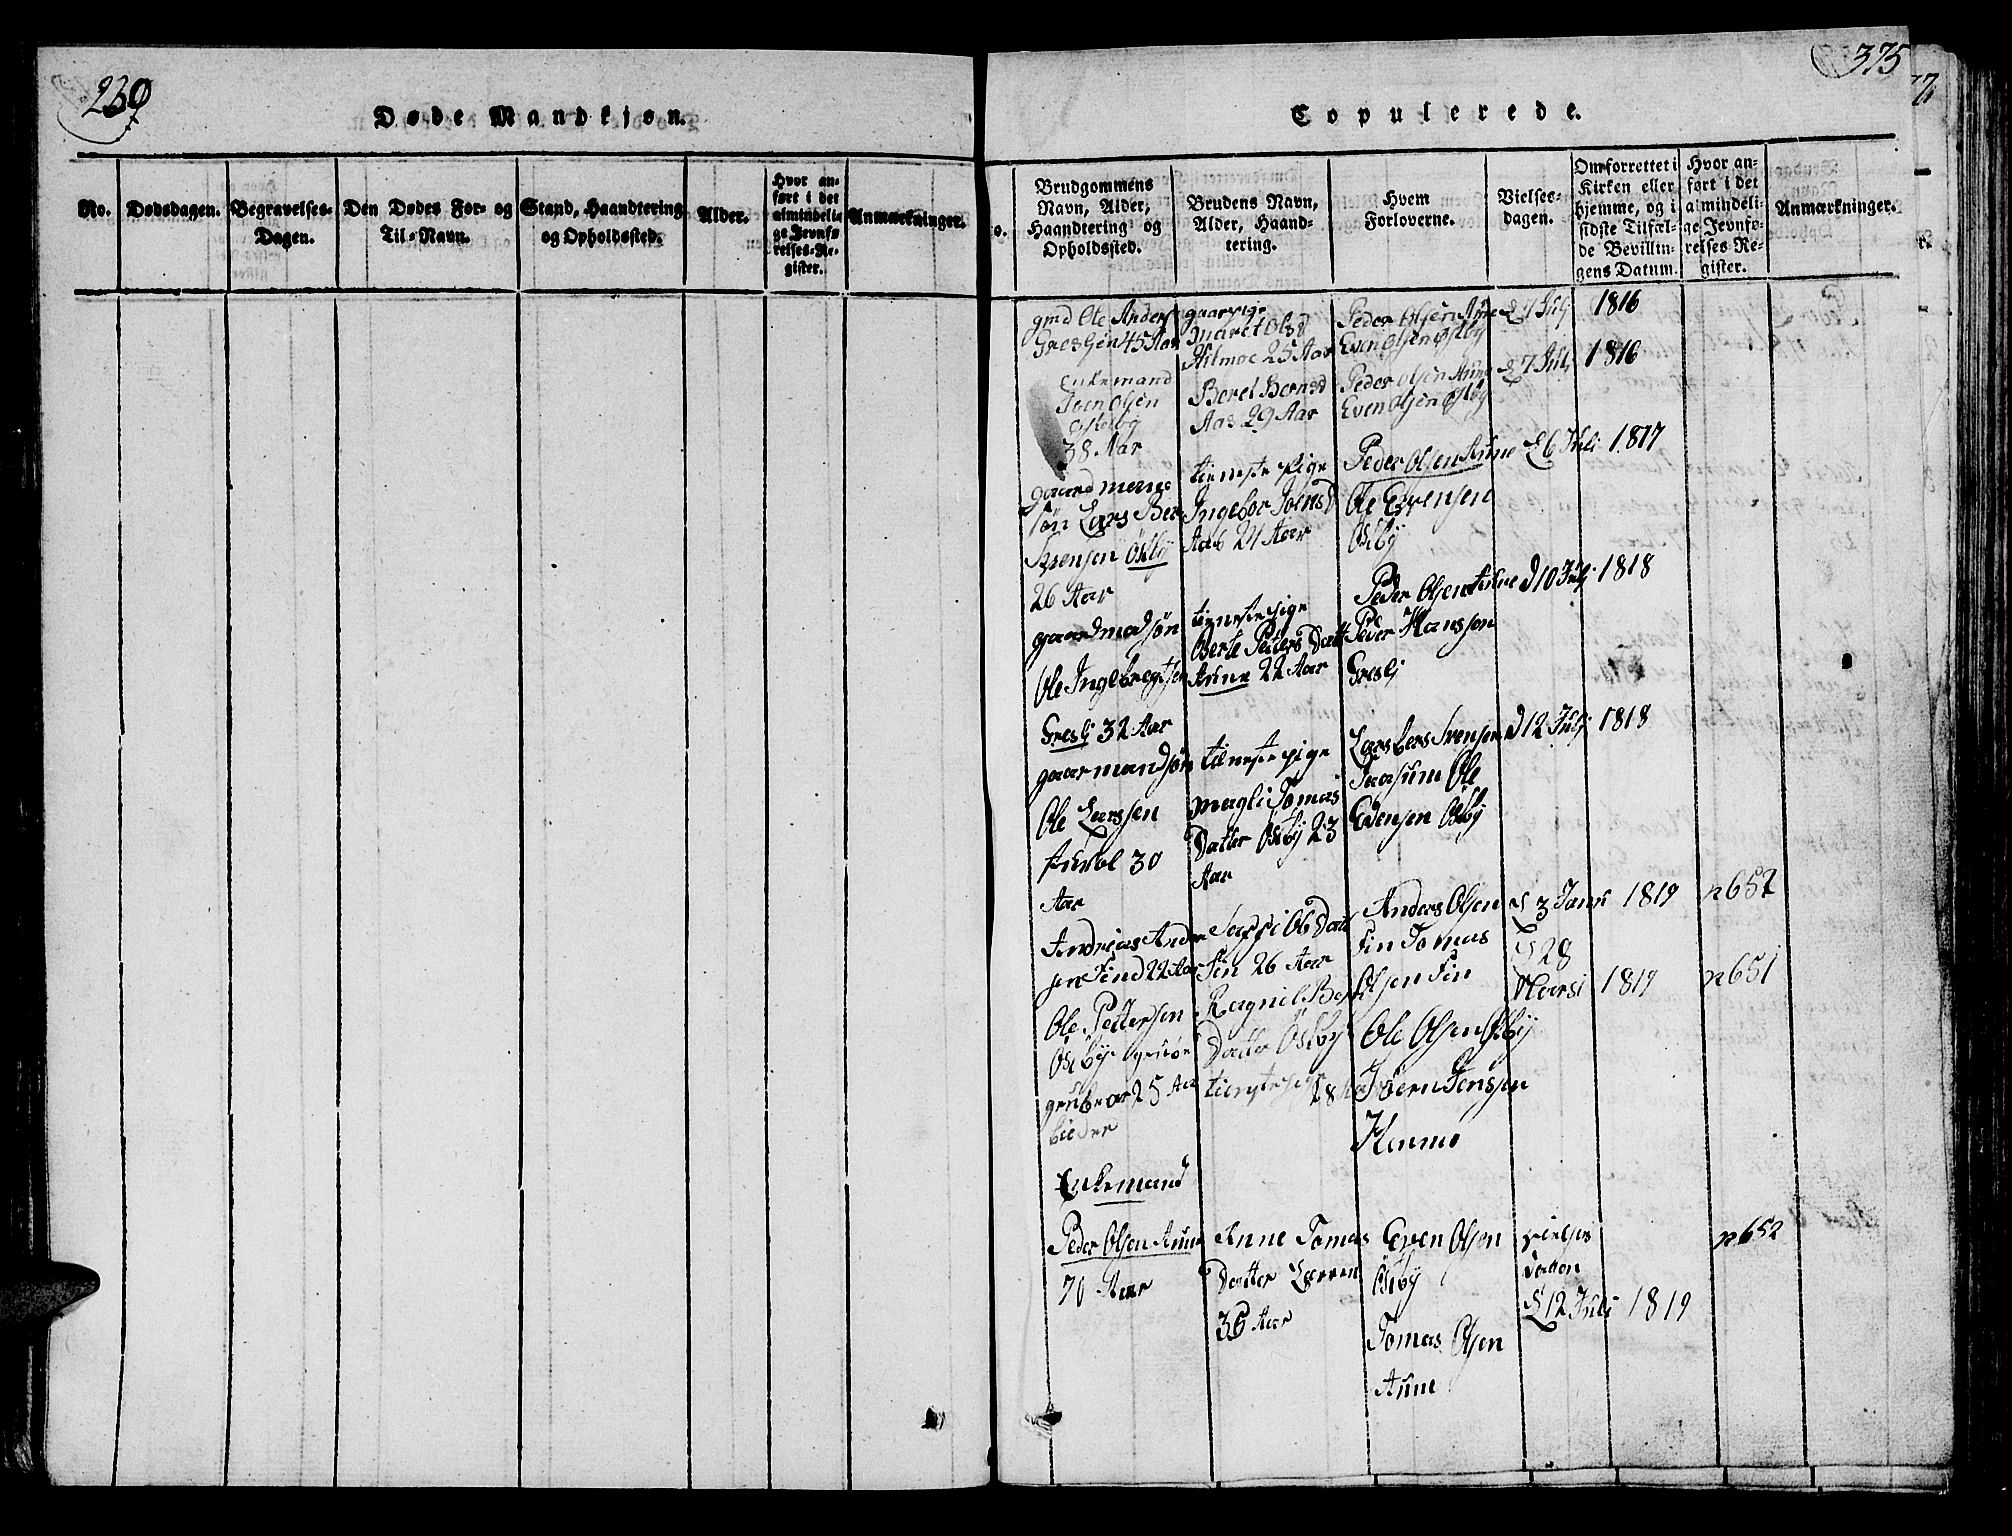 239
Døde Mandkjøn.
No.
Dødsdagen.
Begravelses-
Dagen.
Den Dødes For- og
Til-Navn.
Stand, Haandtering
og Opholdssted.
Alder.
Hvor an-
ført i det
almindeli-
ge Jevnfø-
relses-Re-
gister.
Anmærkninger.
375
Copulerede.
o.
Brudgommens
Navn, Alder,
Haandtering og
Opholdssted.
Brudens Navn,
Alder, Haand-
tering.
Hvem
Forloverne.
Vielses-
dagen.
Om forrettet i
Kirken eller
hjemme, og i
sidste Tilfæl-
de Bevillin-
gens Datum.
Hvor an-
ført i det
almindeli-
ge Jevnfø-
relses Re-
gister.
Anmærkninger.
gmd Ole Anders
45 Aar
gaarpige
Maret Olsd
25 Aar
Peder Olsen Aune
Even Olsen Østby
d 7 Julj 1816
Enkemand
Joen Olsen
Østbÿ
38 Aar
Beret Bernsd
Aas 29 Aar
Peder Olsen Aune
Even Olsen Østbÿ
d 7 Julj 1816
gaardmene
søn Lars Ber
Svensen Østbÿ
26 Aar
tieneste pige
Ingebor Joensd
Aas 24 Aar
Peder Olsen Aune
Ole Evensen
Østbÿ
d 6 Juli 1817
gaardmadsøn
Ole Ingebregtsen
Gresli 32 Aar
tieneste pige
Berte Peters Datt
Aune 22 Aar
Peder Olsen Aune
Peder Hansson
Gresli
d 10 Julj 1818
gaarmandsøn
Ole Larssen
30
Aar
tieneste pige
magli Tomas
Datter Østbÿ 23
Aar
Lars Bersvensen
Ole
Evensen Østbÿ
d 12 Julj 1818
Andreas Ander
sen 22 Aar
Ols Datt
Fin 26 Aar
Anders Olsen
Fin Tomas
Olsen Fin
d 3 Janu 1819
n 652
Ole Pettersen
Østbÿ
grubear 25 Aar
beider
Ragnil
Datter Østbÿ
tienestepige 28
Ole Olsen Østbÿ
Joern Jensen
d 28
Marsi 1819
n 651
Enkemand
Peder Olsen Aune
70 Aar
Anne Tomas
Datter
36 Aar
Even Olsen
Østbÿ
Tomas Olsen
Aune
vielses
d 12 Juli 1819
n 652